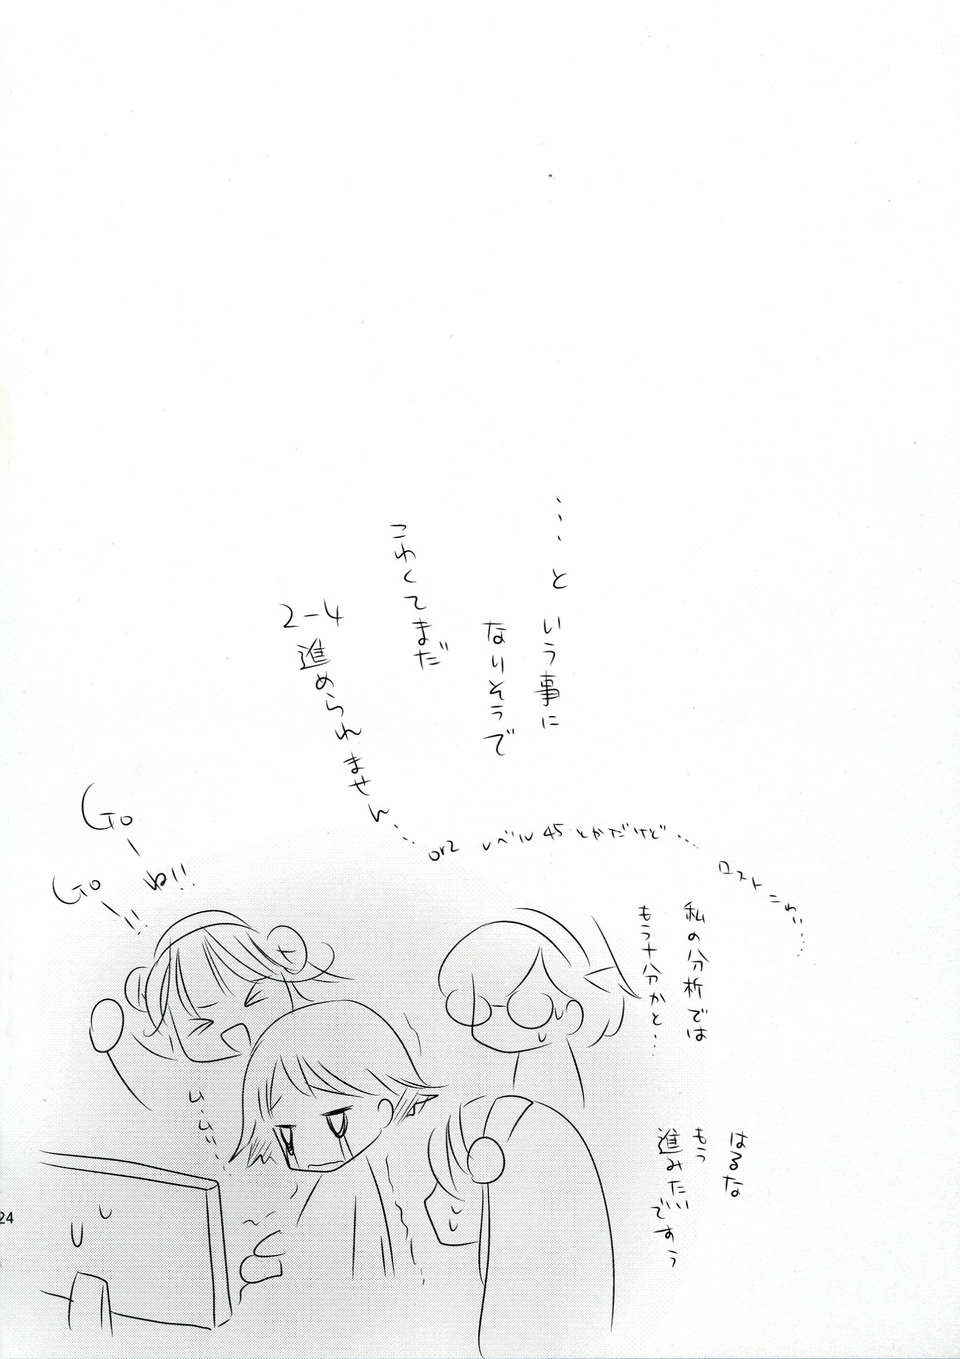 …と いう事に
なりそうで
こわくてまだ
2-4
進められません… orz レベル45とかだけど… ロストこわい…
Goーね!!
Goー!!
私の分析では
もう十分かと…
ひ、ひぃ
はるな
もう
進みたいですぅ
24